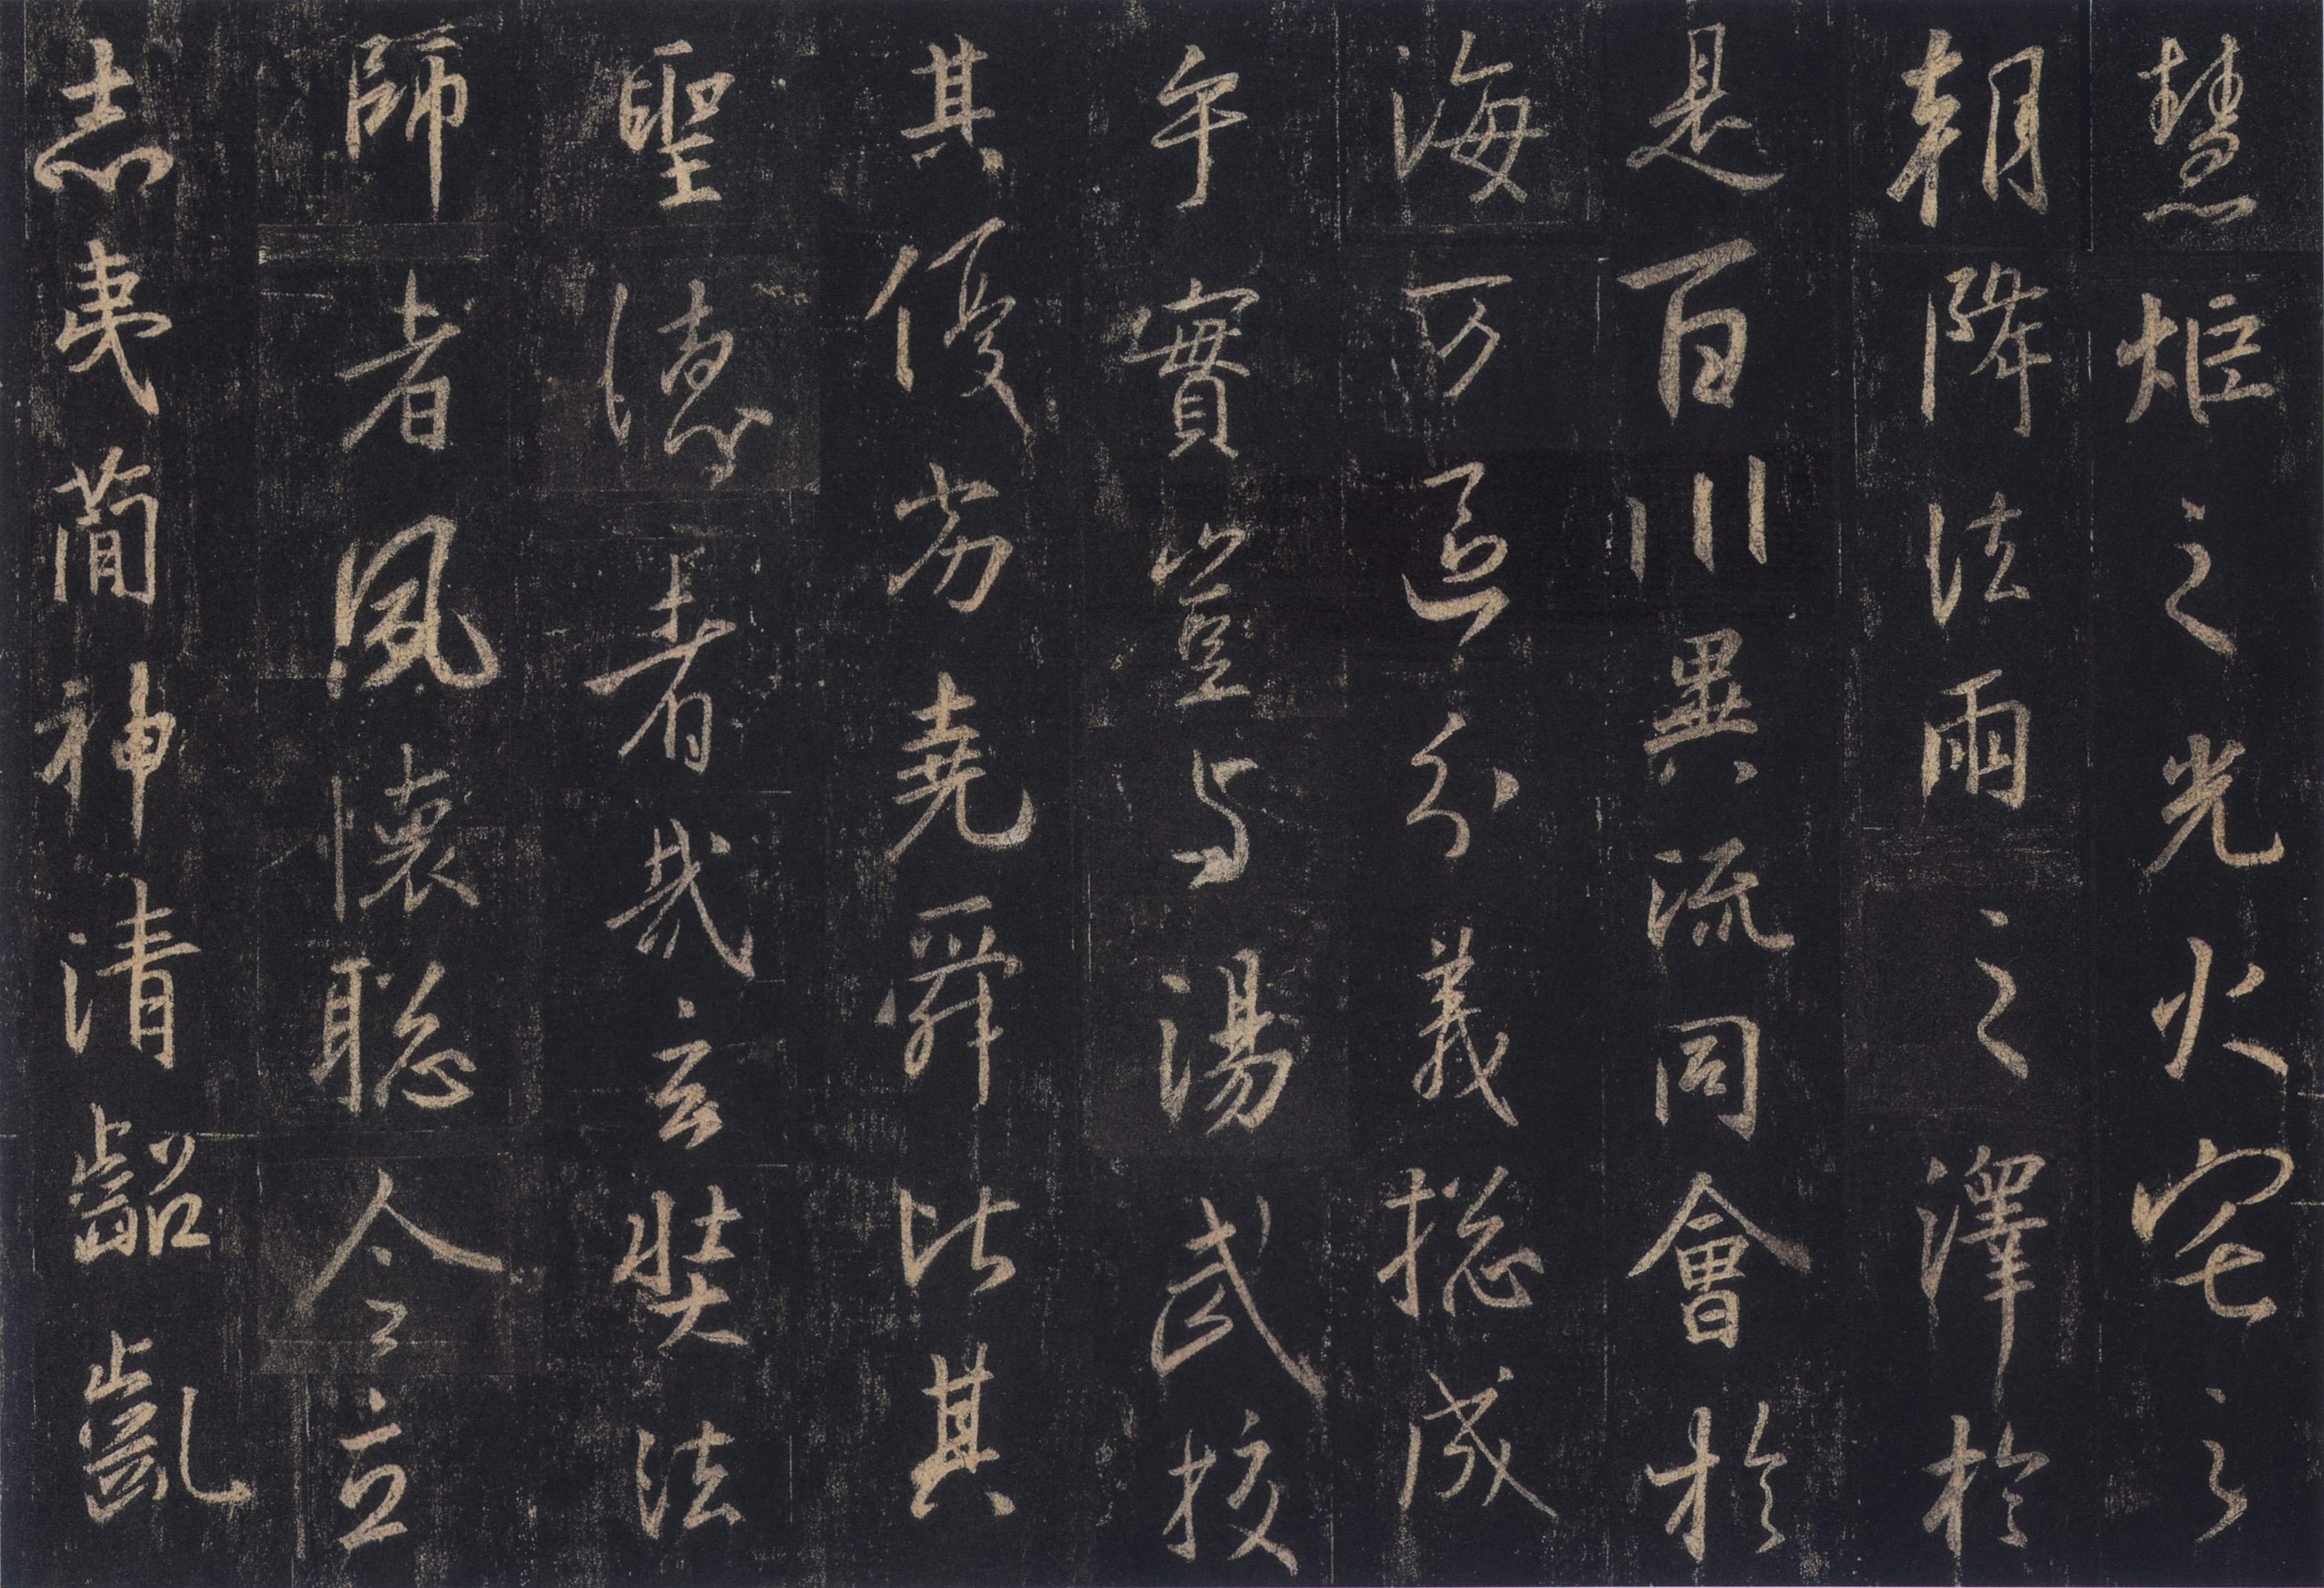 慧炬之光火宅之
朝降法雨之澤於
是百川異流同會於
海万區分義捴成
乎實豈与湯武校
其優劣堯舜比其
聖德者哉玄奘法
師者夙懷聡令立
志夷簡神清齠齔